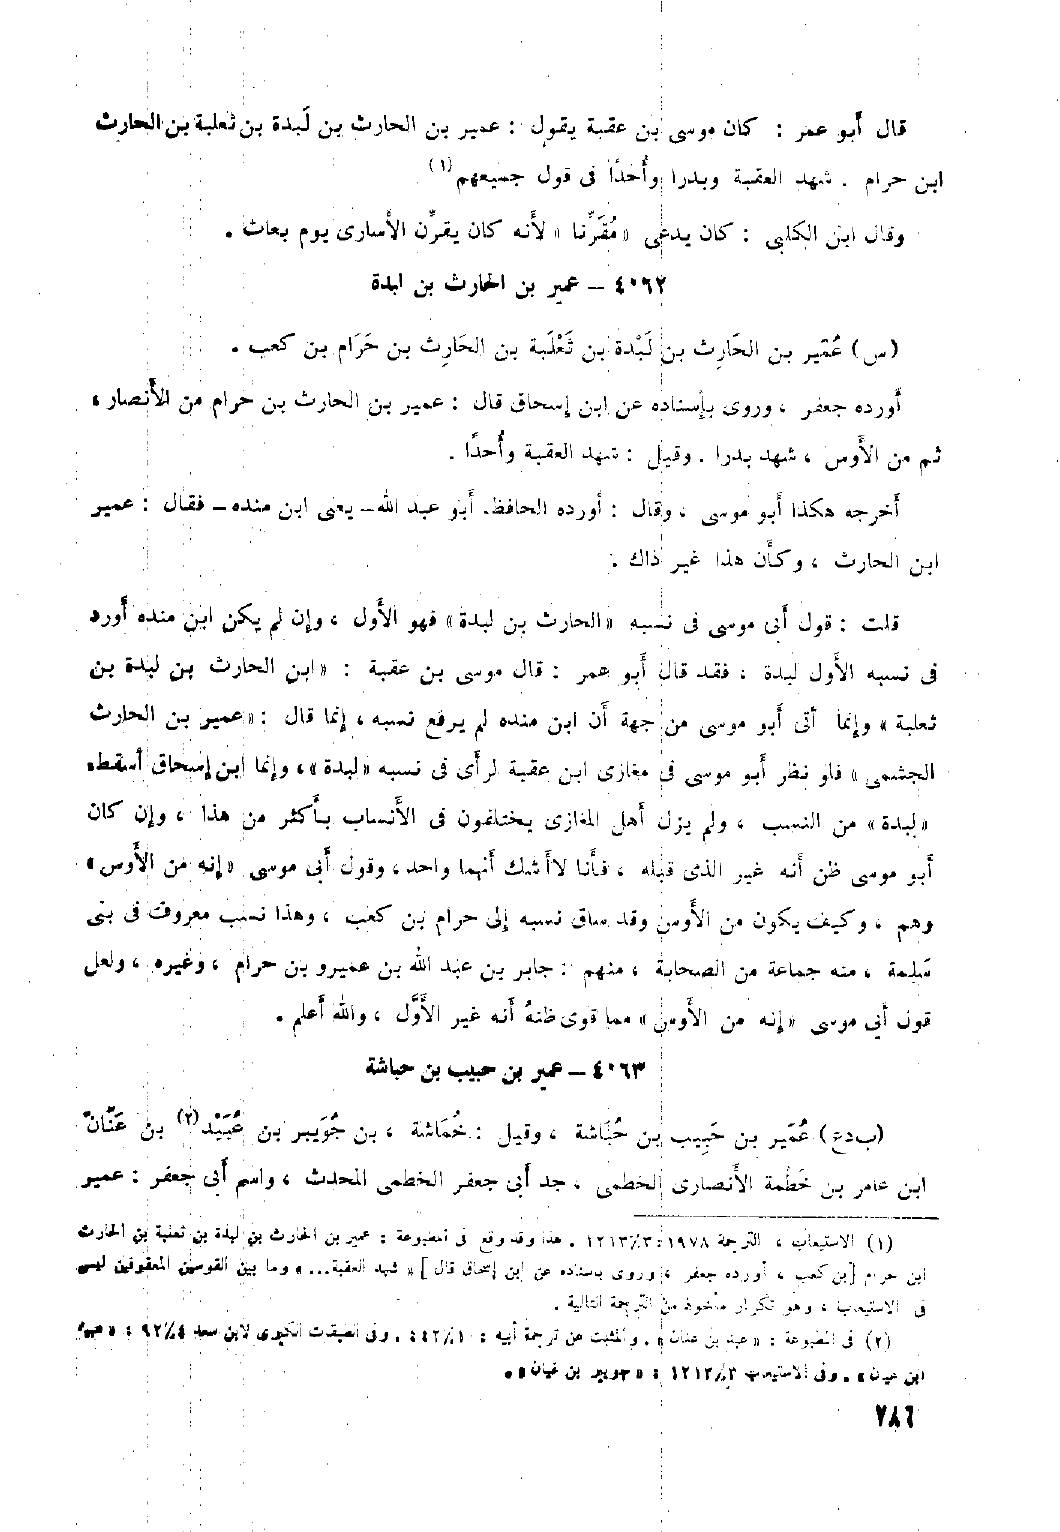 قال أبو عمر : كان موسى بن عقبة يقول : عمير بن الحارث بن لَبدة بن ثعلبة بن الحارث
ابن حرام . شهد العقبة وبدرا وأُحدًا فى قول جميعهم (١)
وقال ابن الكلبى : كان يدعى « مُقَرِّنا » لأنه كان يقرِّن الأسارى يوم بعاث .
٤٠٦٢ – عمير بن الحارث بن لبدة
(س) عُمَير بن الحَارِث بن لَبْدة بن ثَعْلَبة بن الحَارِث بن حَرَام بن كعب .
أورده جعفر ، وروى بإسناده عن ابن إسحاق قال : عمير بن الحارث بن حرام من الأنصار ،
ثم من الأوس ، شهد بدرا . وقيل : شهد العقبة وأُحدًا .
أخرجه هكذا أبو موسى ، وقال : أورده الحافظ أبو عبد الله – يعنى ابن منده – فقال : عمير
ابن الحارث ، وكأن هذا غير ذاك .
قلت : قول أبى موسى فى نسبه «الحارث بن لبدة» فهو الأول ، وإن لم يكن ابن منده أورد
فى نسبه الأول لبدة ، فقد قال أبو عمر : قال موسى بن عقبة : «ابن الحارث بن لبدة بن
ثعلبة» وإنما أتى أبو موسى من جهة أن ابن منده لم يرفع نسبه ، إنما قال : «عمير بن الحارث
الجشمى» فلو نظر أبو موسى فى مغازى ابن عقبة لرأى فى نسبه «لبدة» ، وإنما ابن إسحاق أسقط
«لبدة» من النسب ، ولم يزل أهل المغازى يختلفون فى الأنساب بأكثر من هذا ، وإن كان
أبو موسى ظن أنه غير الذى قبله ، فأنا لا أشك أنهما واحد ، وقول أبى موسى «إنه من الأوس»
وهم ، وكيف يكون من الأوس وقد ساق نسبه إلى حرام بن كعب ، وهذا نسب معروف فى بنى
سَلِمة ، منه جماعة من الصحابة ، منهم : جابر بن عبد الله بن عمرو بن حرام ، وغيره ، ولعل
قول أبي موسى «إنه من الأوس» مما قوى ظنهُ أنه غير الأوَّل ، والله أعلم .
٤٠٦٣ – عمير بن حبيب بن حباشة
(ب د ع) عُمَير بن حَبِيب بن حُبَاشة ، وقيل : خُمَاشة ، بن جُوَيبر بن عُبَيْد (٢) بن عَنَّان
ابن عامر بن خَطْمة الأنصارى الخطمى ، جد أبى جعفر الخطمى المحدث ، واسم أبى جعفر : عمير
(١) الاستيعاب ، الترجمة ١٩٧٨ : ٣/١٢١٣ . هذا وقد وقع فى المطبوعة : عمير بن الحارث بن لبدة بن ثعلبة بن الحارث
ابن حرام [بن كعب ، أورده جعفر ، وروى باسناده عن ابن إسحاق قال] « شهد العقبة ... » وما بين القوسين المعقوفين ليس
فى الاستيعاب ، وهو تكرار مأخوذ من الترجمة التالية .
(٢) فى المطبوعة : «عبد بن عنان» . والمثبت عن ترجمة أبيه : ١/٤٤٢ . وفى الطبقات الكبرى لابن سعد ٤/٩٢ :
ابن عيان» . وفى الاستيعاب ٣/١٢١٣ : «جويبر بن غيان» .
٧٨٦